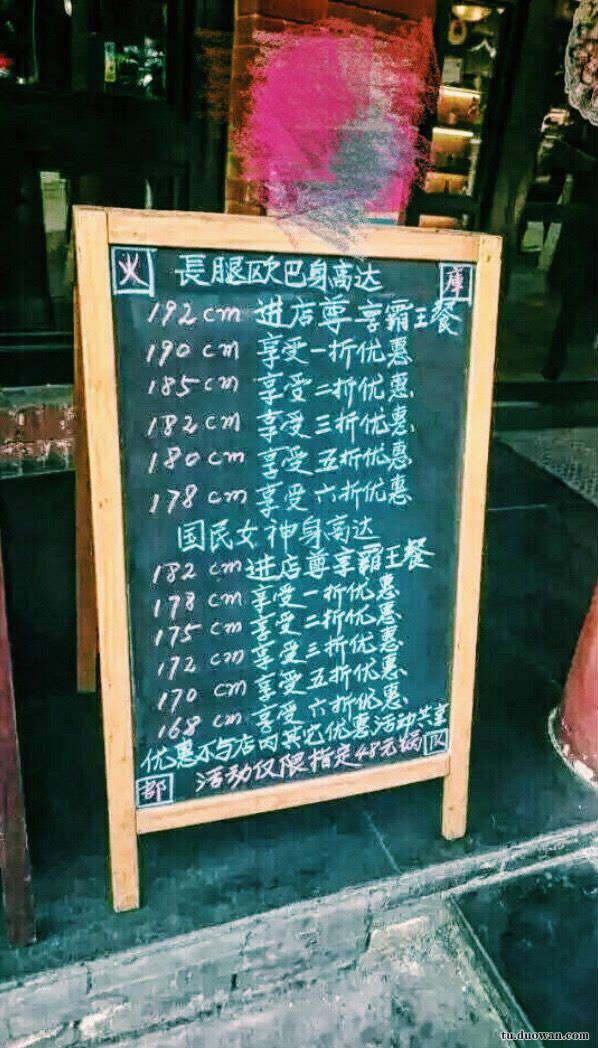 火 長腿欧巴身高达 庫
192cm 进店尊享霸王餐
190cm 享受一折优惠
185cm 享受二折优惠
182cm 享受三折优惠
180cm 享受五折优惠
178cm 享受六折优惠
国民女神身高达
182cm 进店尊享霸王餐
178cm 享受一折优惠
175cm 享受二折优惠
172cm 享受三折优惠
170cm 享受五折优惠
168cm 享受六折优惠
优惠不与店内其它优惠活动共享
部 活动仅限指定48元锅 队
tu.duowan.com